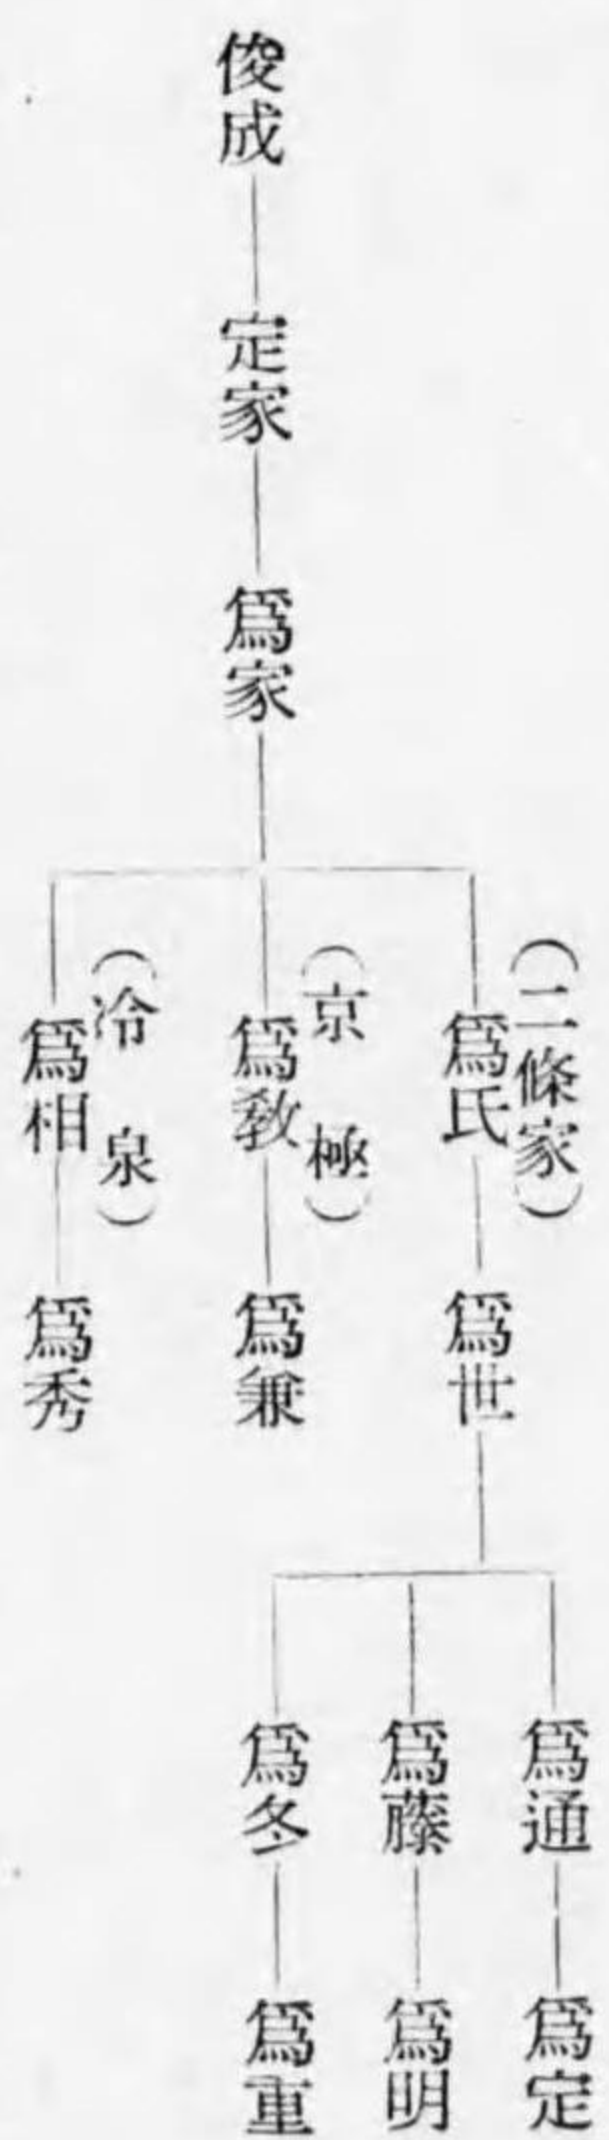 俊成
定家
爲家
(二條家)
爲氏
爲世
爲通
爲定
爲藤
爲明
爲冬
爲重
(京極)
爲敎
爲兼
(冷泉)
爲相
爲秀